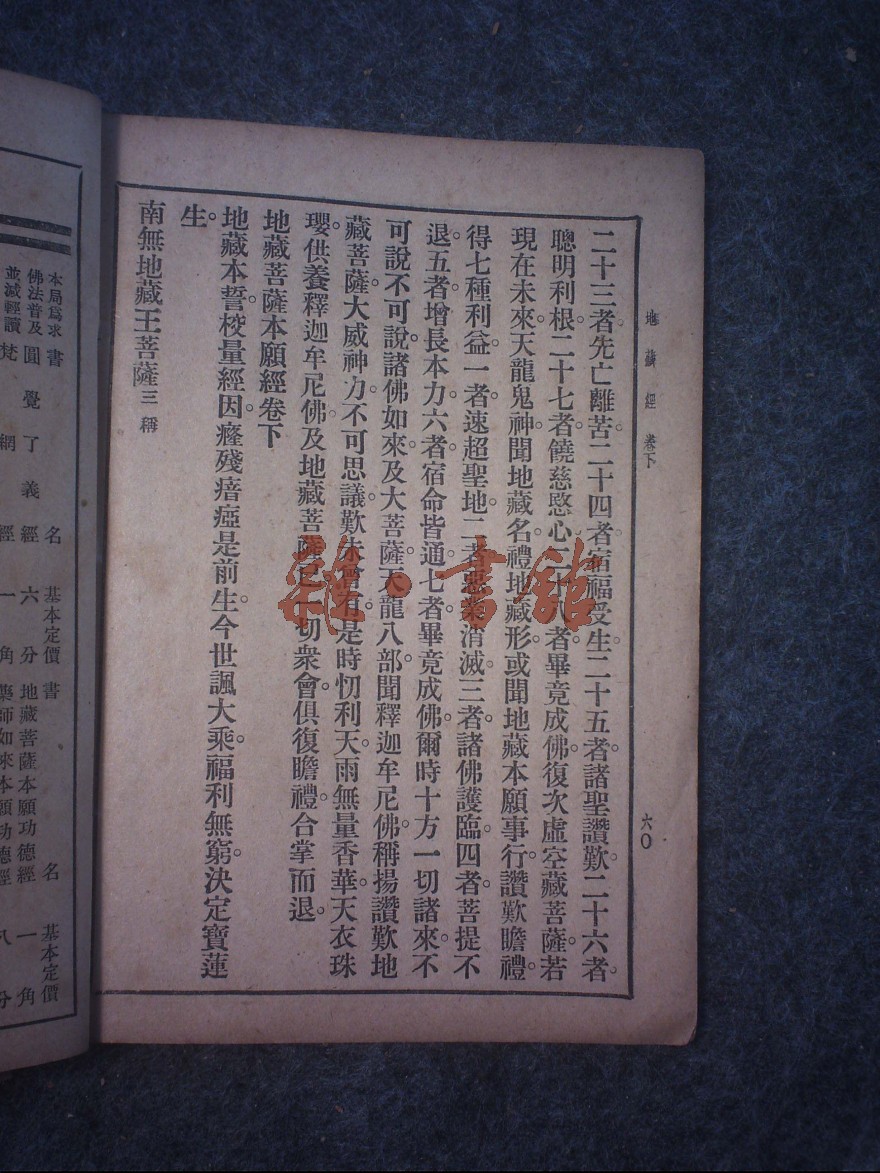 地藏經 卷下
六〇
二十三者先亡離苦。二十四者宿福受生。二十五者諸聖讚歎。二十六者
聰明利根。二十七者饒慈愍心。二十八者畢竟成佛。復次虛空藏菩薩。若
現在未來天龍鬼神。聞地藏名。禮地藏形。或聞地藏本願事行。讚歎瞻禮。
得七種利益。一者速超聖地。二者惡業消滅。三者諸佛護臨。四者菩提不
退。五者增長本力。六者宿命皆通。七者畢竟成佛。爾時十方一切諸來。不
可說不可說諸佛如來。及大菩薩天龍八部。聞釋迦牟尼佛。稱揚讚歎地
藏菩薩。大威神力。不可思議。歎未曾有。是時忉利天。雨無量香華。天衣珠
瓔。供養釋迦牟尼佛。及地藏菩薩已。一切衆會。俱復瞻禮。合掌而退。
地藏菩薩本願經卷下
地藏本誓。校量經因。癃殘瘖瘂是前生。今世諷大乘。福利無窮。決定寶蓮
生。
南無地藏王菩薩三稱
雜·書館
書名 基本定價 書名 基本定價
圓覺了義經 六分 地藏菩薩本願功德經 一角
梵網經 一角 藥師如來本願功德經 八分
本局爲求
佛法普及
並減輕讀